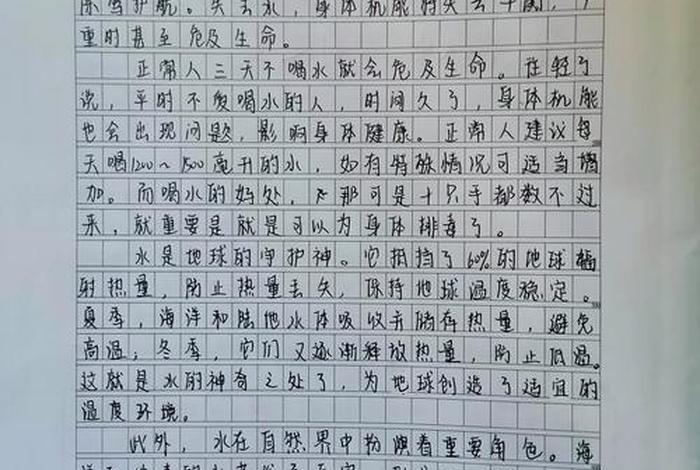 保驾护航。失去水，身体机能将失去平衡，严
重时甚至危及生命。
正常人三天不喝水就会危及生命。往轻了
说，平时不爱喝水的人，时间久了，身体机能
也会出现问题，影响身体健康。正常人建议每
天喝1200～1500毫升的水，如有特殊情况可适当增
加。而喝水的好处，那可是十只手都数不过
来，就重要是就是可以为身体排毒了。
水是地球的守护神。它抵挡了60%的地球辐
射热量，防止热量丢失，保持地球温度稳定。
夏季，海洋和陆地水体吸收并储存热量，避免
高温；冬季，它们又逐渐释放热量，防止低温。
这就是水的神奇之处了，为地球创造了适宜的
温度环境。
此外，水在自然界中扮演着重要角色。海